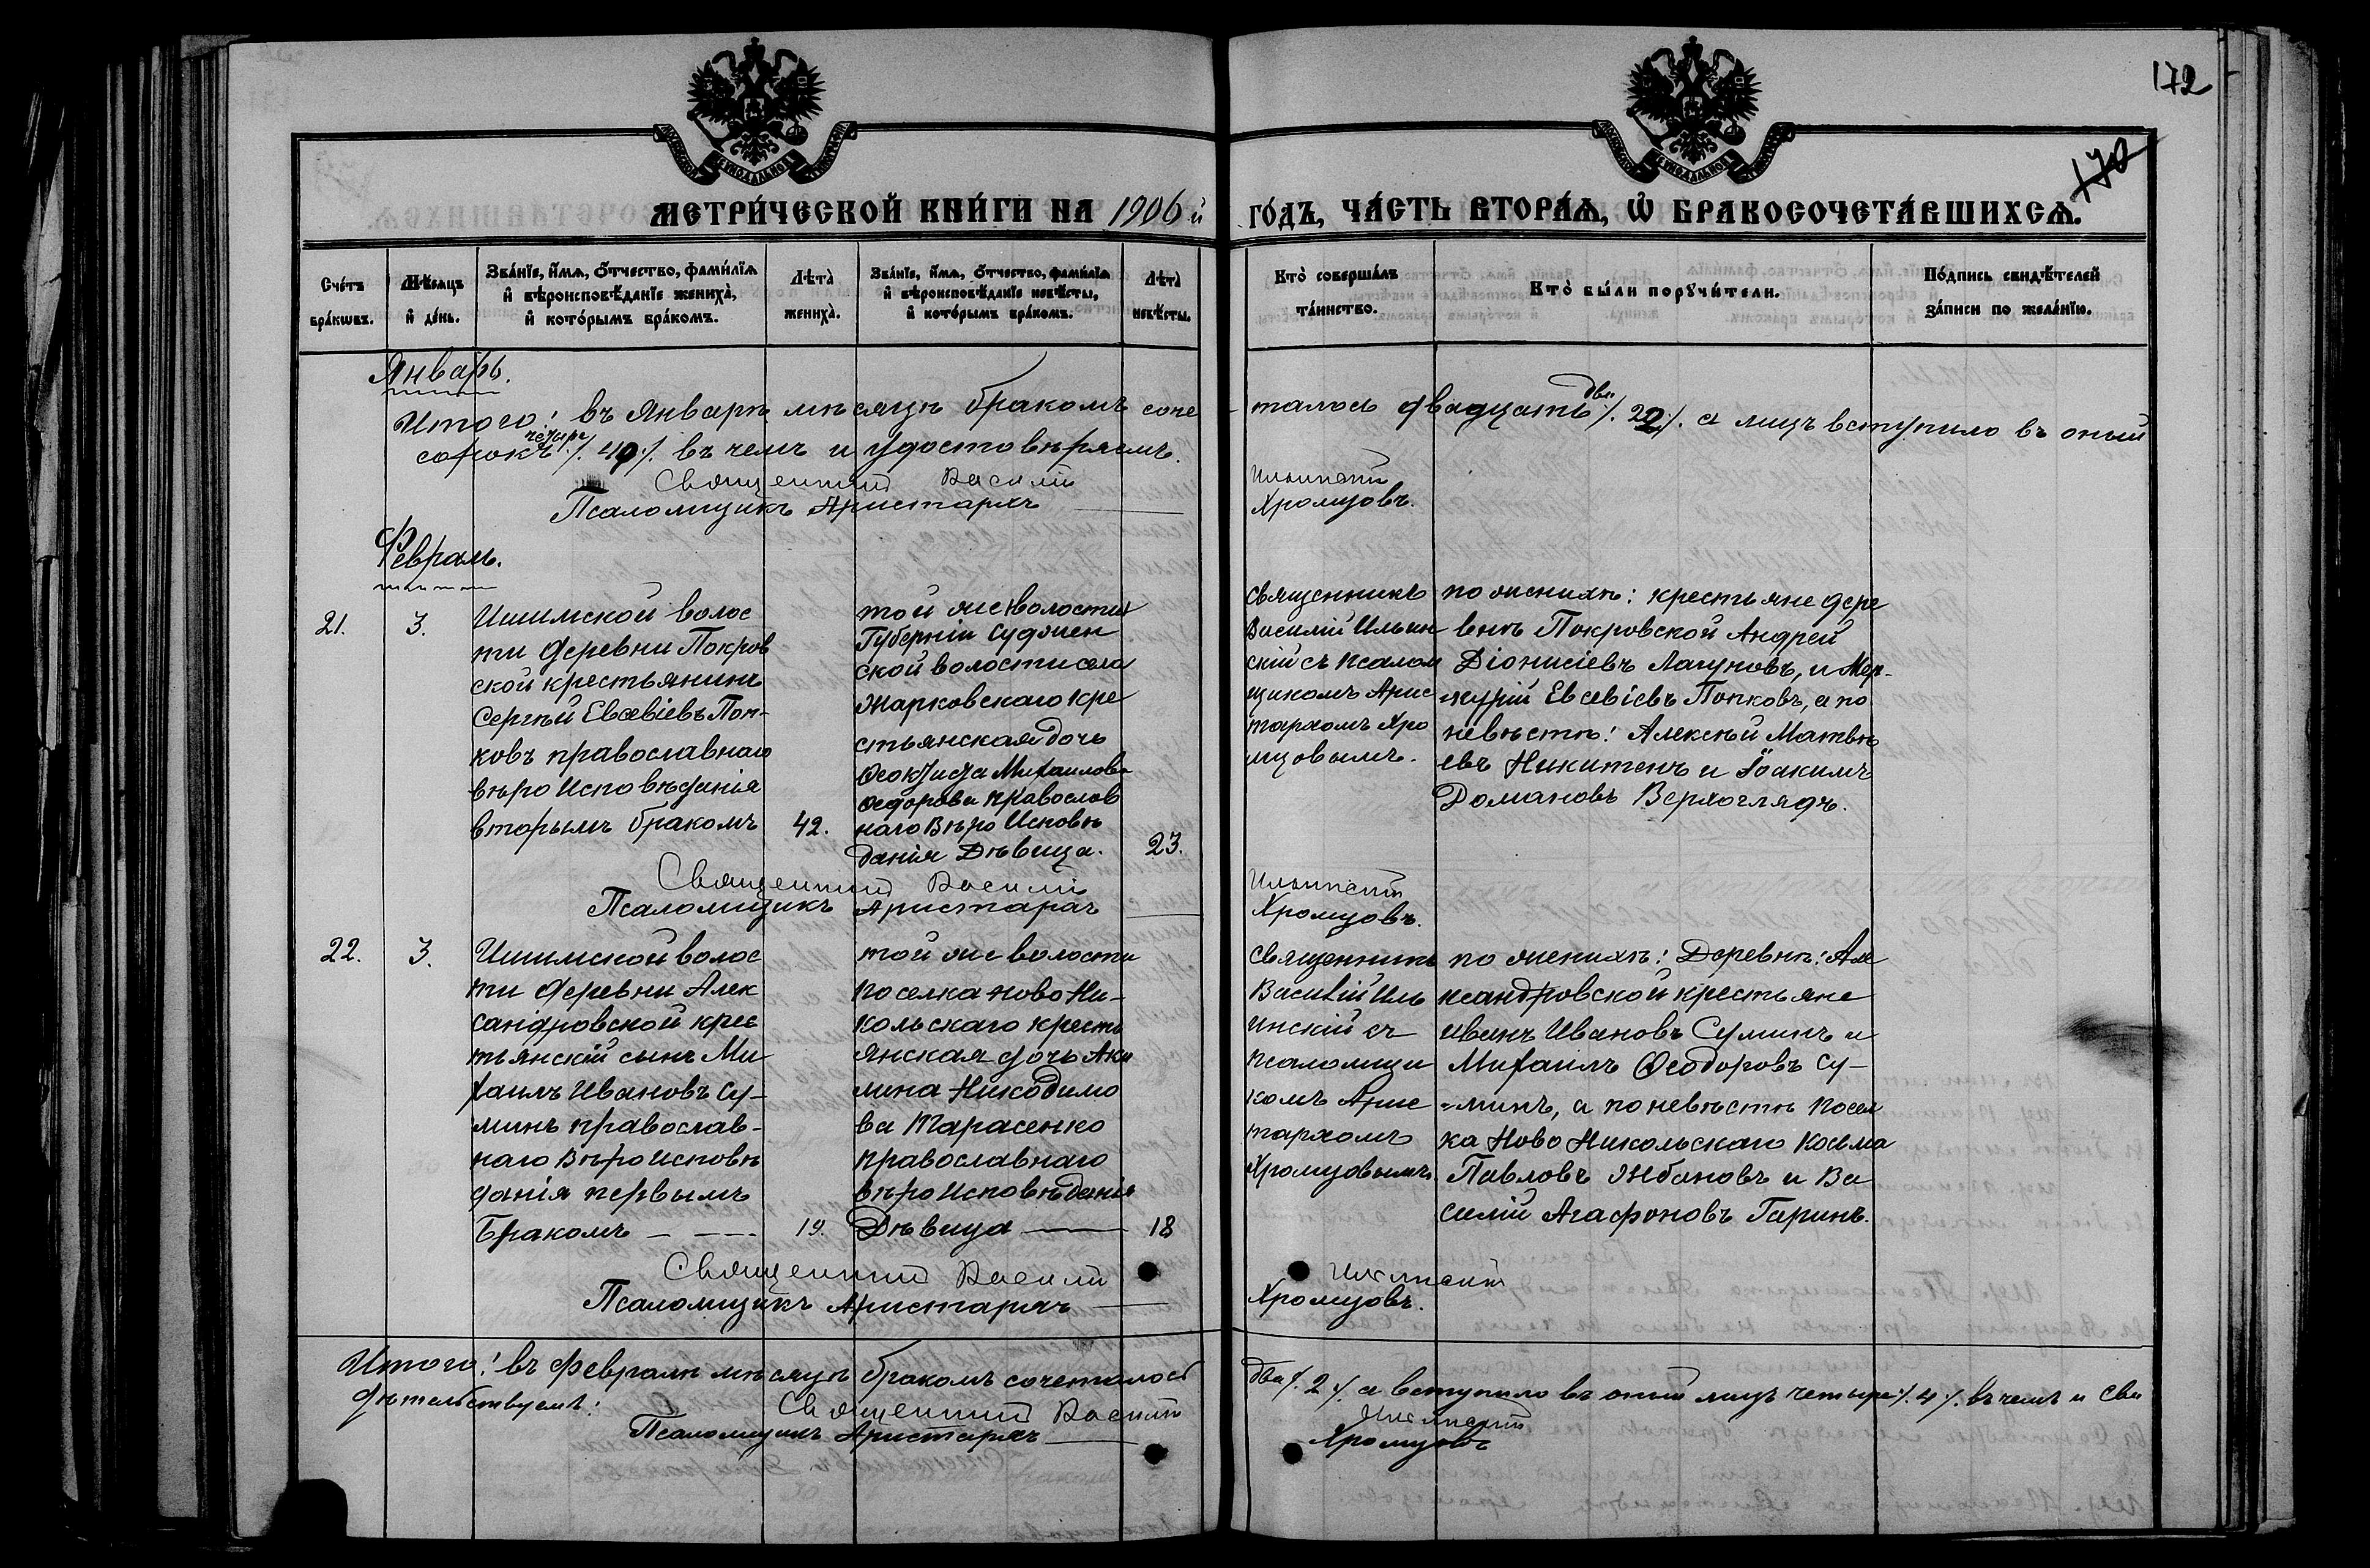 172
170
МЕТРИ́ЧЕСКОЙ КНИ́ГИ НА 1906 й
ГО́ДЪ, ЧА́СТЬ ВТОРА́Ѧ, Ѡ҆ БРАКОСОЧЕТА́ВШИХСѦ.
Сче́тъ бра́кѡвъ.
Мѣ́сяцъ и҆ де́нь.
Зва́нїе, и҆́мѧ, ѻ҆́тчество, фами́лїѧ и҆ вѣроисповѣ́данїе жениха̀, и҆ кото́рымъ бра́комъ.
Лѣ́та̀ жениха̀.
Зва́нїе, и҆́мѧ, ѻ҆́тчество, фами́лїѧ и҆ вѣроисповѣ́данїе невѣ́сты, и҆ кото́рымъ бра́комъ.
Лѣ́та̀ невѣ́сты.
Кто̀ соверша́лъ та́инство.
Кто̀ бы́ли порꙋчи́тели.
По́дпись свидѣ́телей за́писи по жела́нїю.
Январь.
Итого: въ Январѣ мѣсяцѣ бракомъ соче
талось двадцать два /. 22 /. а лицъ вступило въ оный
сорокъ четыре /. 44 /. въ чемъ и удостовѣряемъ.
Священникъ Василій Ильинскій
Псаломщикъ Аристархъ Хромцовъ.
Февраль.
21.
3.
Ишимской волос
ти деревни Покров
ской крестьянинъ
Сергѣй Евсевіевъ Поп-
ковъ православнаго
вѣроисповѣданія
вторымъ бракомъ
42.
той же волости
Губерніи Суджен
ской волости села
Жарковскаго кре
стьянская дочь
Ѳеоктиста Михаилова
Ѳедорова православ
наго Вѣроисповѣ
данія Дѣвица.
23.
священникъ
Василій Ильин
скій съ псалом
щикомъ Арис
тархомъ Хро
мцовымъ.
по женихѣ: крестьяне дере
внѣ Покровской Андрей
Діонисіевъ Лагуновъ, и Мер-
курій Евсевіевъ Попковъ, а по
невѣстѣ: Алексѣй Матвѣ
евъ Никитенъ и Іоакимъ
Домановъ Верхоглядъ.
Священникъ Василій Ильинскій
Псаломщикъ Аристархъ Хромцовъ.
22.
3.
Ишимской волос
ти деревни Алек
сандровской крес
тьянскій сынъ Ми
хаилъ Ивановъ Су-
минъ православ-
наго Вѣроисповѣ
данія первымъ
Бракомъ
19.
той же волости
поселка Ново Ни-
кольскаго кресть
янская дочь Аки
лина Никодимо
ва Тарасенко
православнаго
вѣроисповѣданія
Дѣвица
18
Священникъ
Василій Иль
инскій съ
псаломщи
комъ Арис
тархомъ
Хромцовымъ.
по женихѣ: Деревнѣ: Але
ксандровской крестьяне
Иванъ Ивановъ Суминъ и
Михаилъ Ѳеодоровъ Су-
минъ, а по невѣстѣ посел
ка Ново Никольскаго Косьма
Павловъ Жбановъ и Ва
силій Агафоновъ Гаринъ.
Священникъ Василій Ильинскій
Псаломщикъ Аристархъ Хромцовъ.
Итого: въ февралѣ мѣсяцѣ бракомъ сочеталось
два /. 2 /. а вступило въ оный лицъ четыре /. 4 /. въ чемъ и сви
дѣтельствуемъ:
Священникъ Василій Ильинскій
Псаломщикъ Аристархъ Хромцовъ